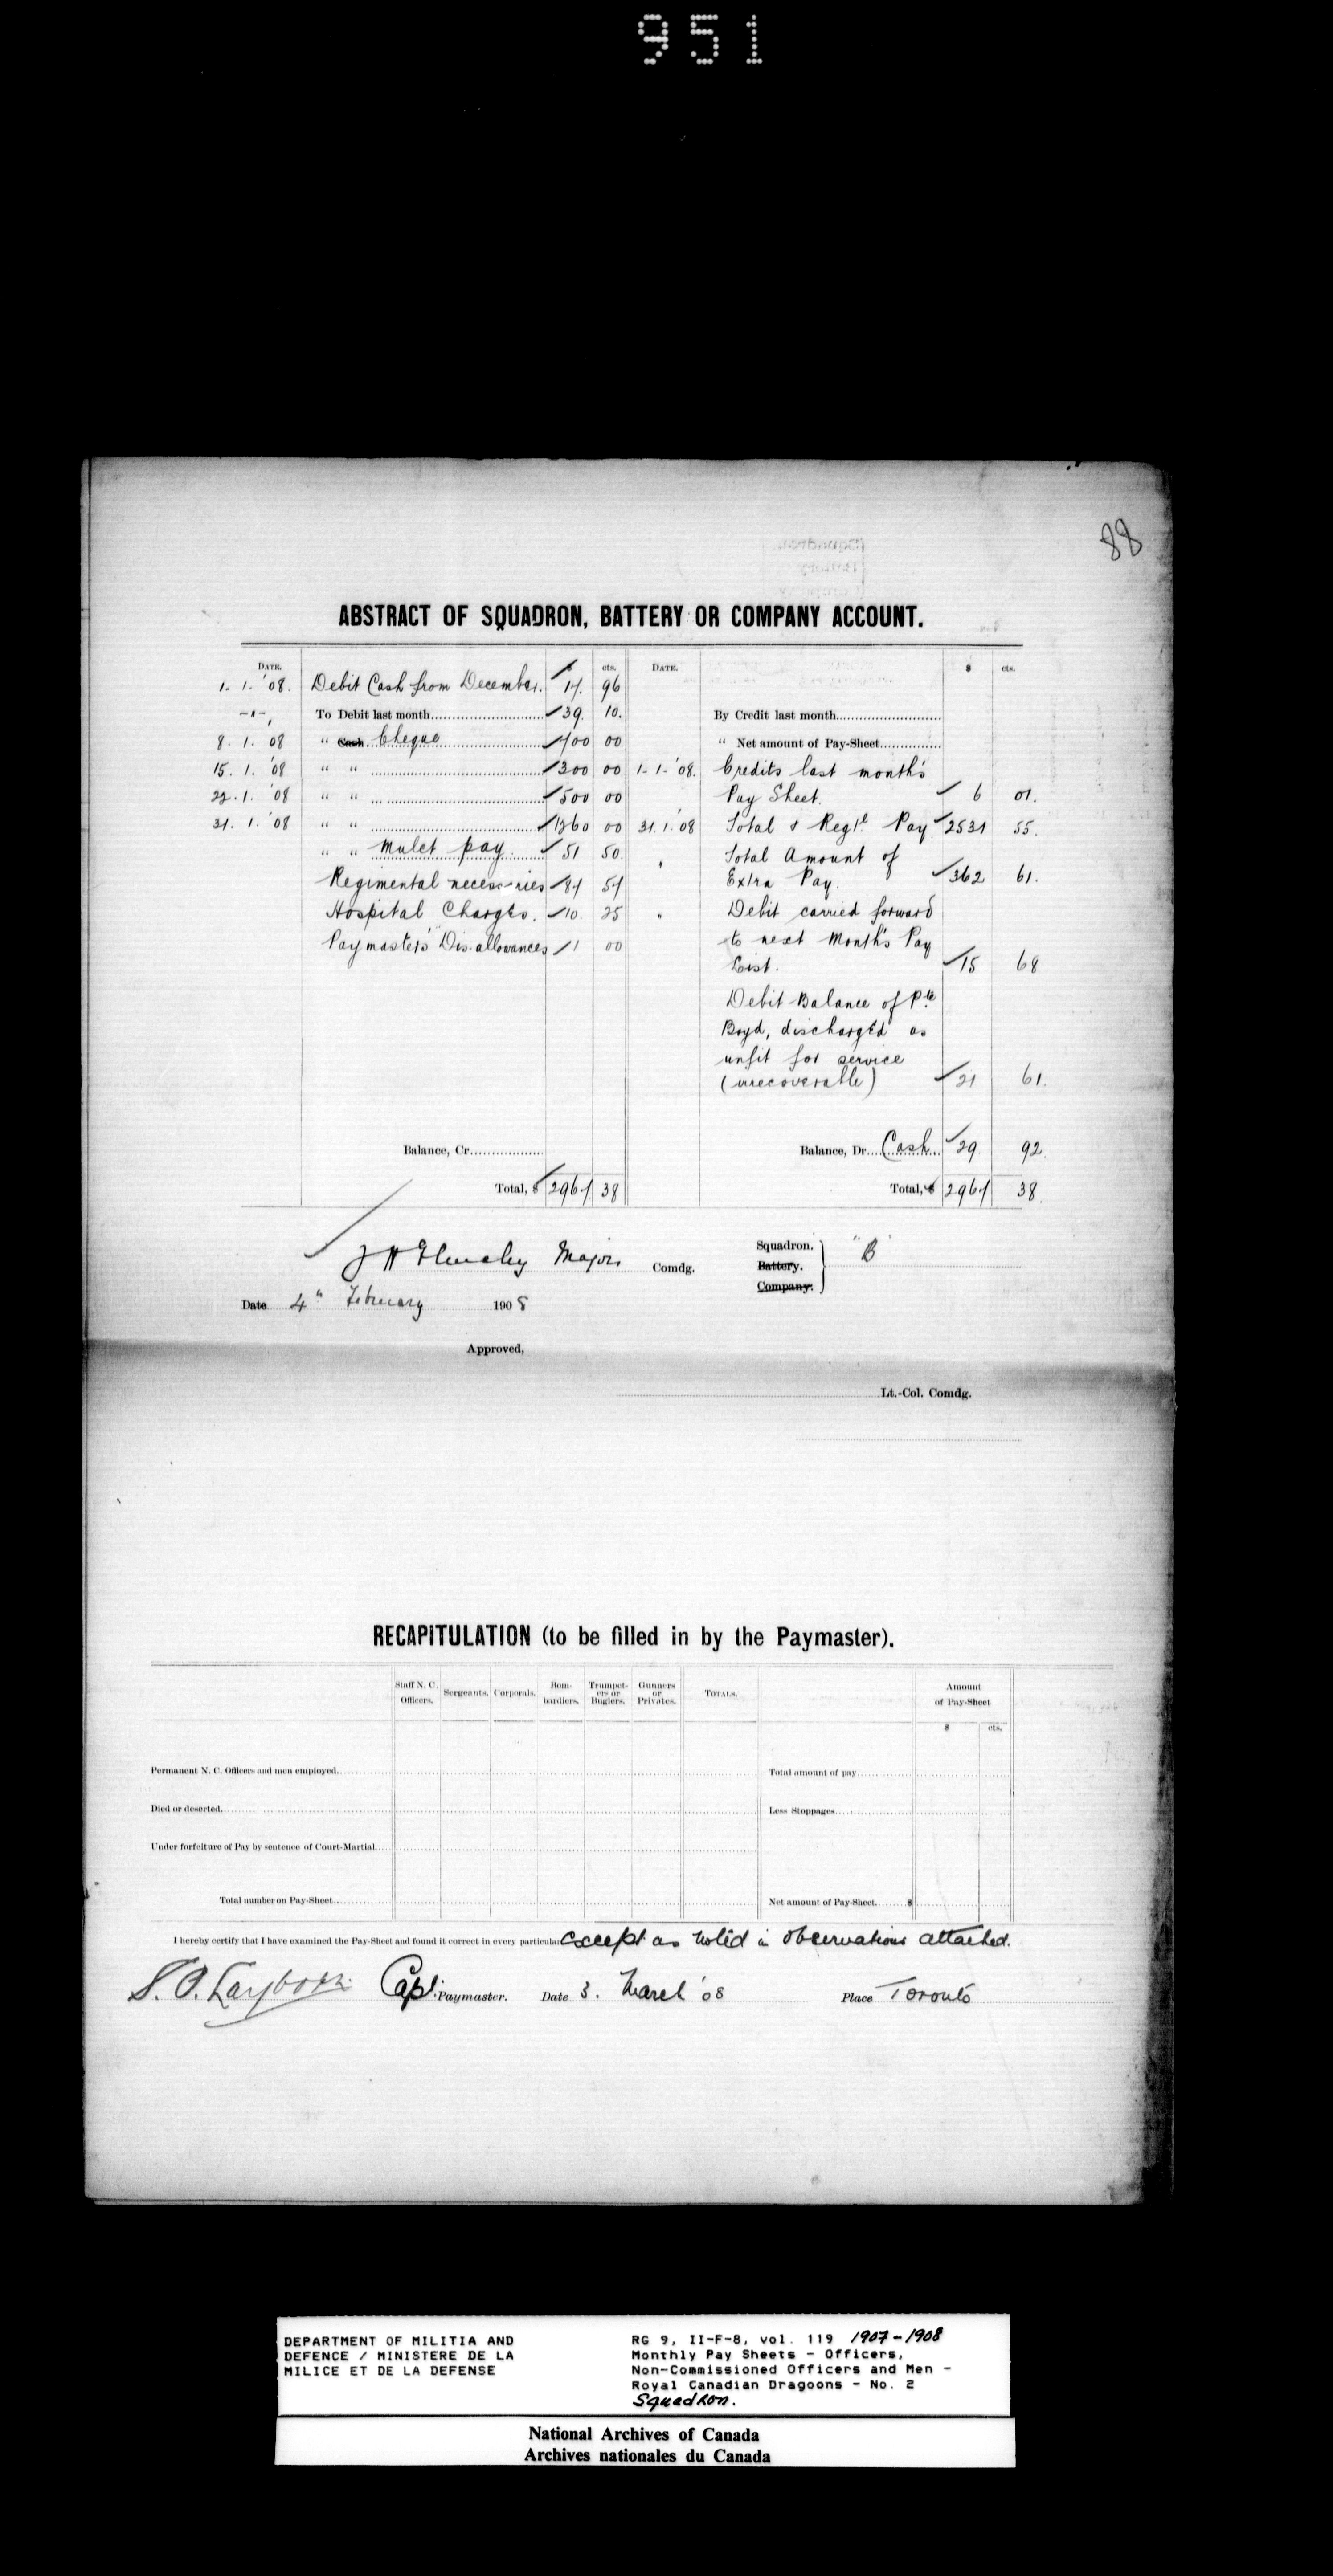 951
88
ABSTRACT OF SQUADRON, BATTERY OR COMPANY ACCOUNT.
DATE. $ cts. DATE. $ cts.
1. 1. '08. Debit Cash from December. 17. 96
-"-, To Debit last month 39. 10. By Credit last month
8. 1. 08 " Cash Cheque 700 00 " Net amount of Pay-Sheet
15. 1. '08 " " 300 00 1. 1. '08. Credits last month's
22. 1. '08 " " 500 00 Pay Sheet. 6 01.
31. 1. '08 " " 1260 00 31. 1. '08 Total Regtl Pay 2531 55.
" " Mulct pay. 51 50. " Total Amount of
Regimental necessaries 87 57 Extra Pay. 362 61.
Hospital Charges. 10. 25 " Debit carried forward
Paymaster's Dis-allowances 1 00 to next Month's Pay
List. 15 68
Debit Balance of Pte
Boyd, discharg'd as
unfit for service
(irrecoverable) 21 61.
Balance, Cr. Balance, Dr. Cash. 29. 92.
Total, $ 2967 38 Total, $ 2967 38.
J H Elmsley Major Comdg. Squadron. "B"
Battery.
Company.
Date 4" February 1908
Approved,
Lt.-Col. Comdg.
RECAPITULATION (to be filled in by the Paymaster).
Staff N. C. Officers. Sergeants. Corporals. Bombardiers. Trumpeters or Buglers. Gunners or Privates. TOTALS. Amount of Pay-Sheet
$ cts.
Permanent N. C. Officers and men employed. Total amount of pay
Died or deserted. Less Stoppages
Under forfeiture of Pay by sentence of Court-Martial. Net amount of Pay-Sheet $
Total number on Pay-Sheet
I hereby certify that I have examined the Pay-Sheet and found it correct in every particular except as noted in observations attached.
Capt. Paymaster. Date 3. March '08 Place Toronto
DEPARTMENT OF MILITIA AND
DEFENCE / MINISTERE DE LA
MILICE ET DE LA DEFENSE
RG 9, II-F-8, vol. 119 1907-1908
Monthly Pay Sheets - Officers,
Non-Commissioned Officers and Men -
Royal Canadian Dragoons - No. 2
Squadron.
National Archives of Canada
Archives nationales du Canada